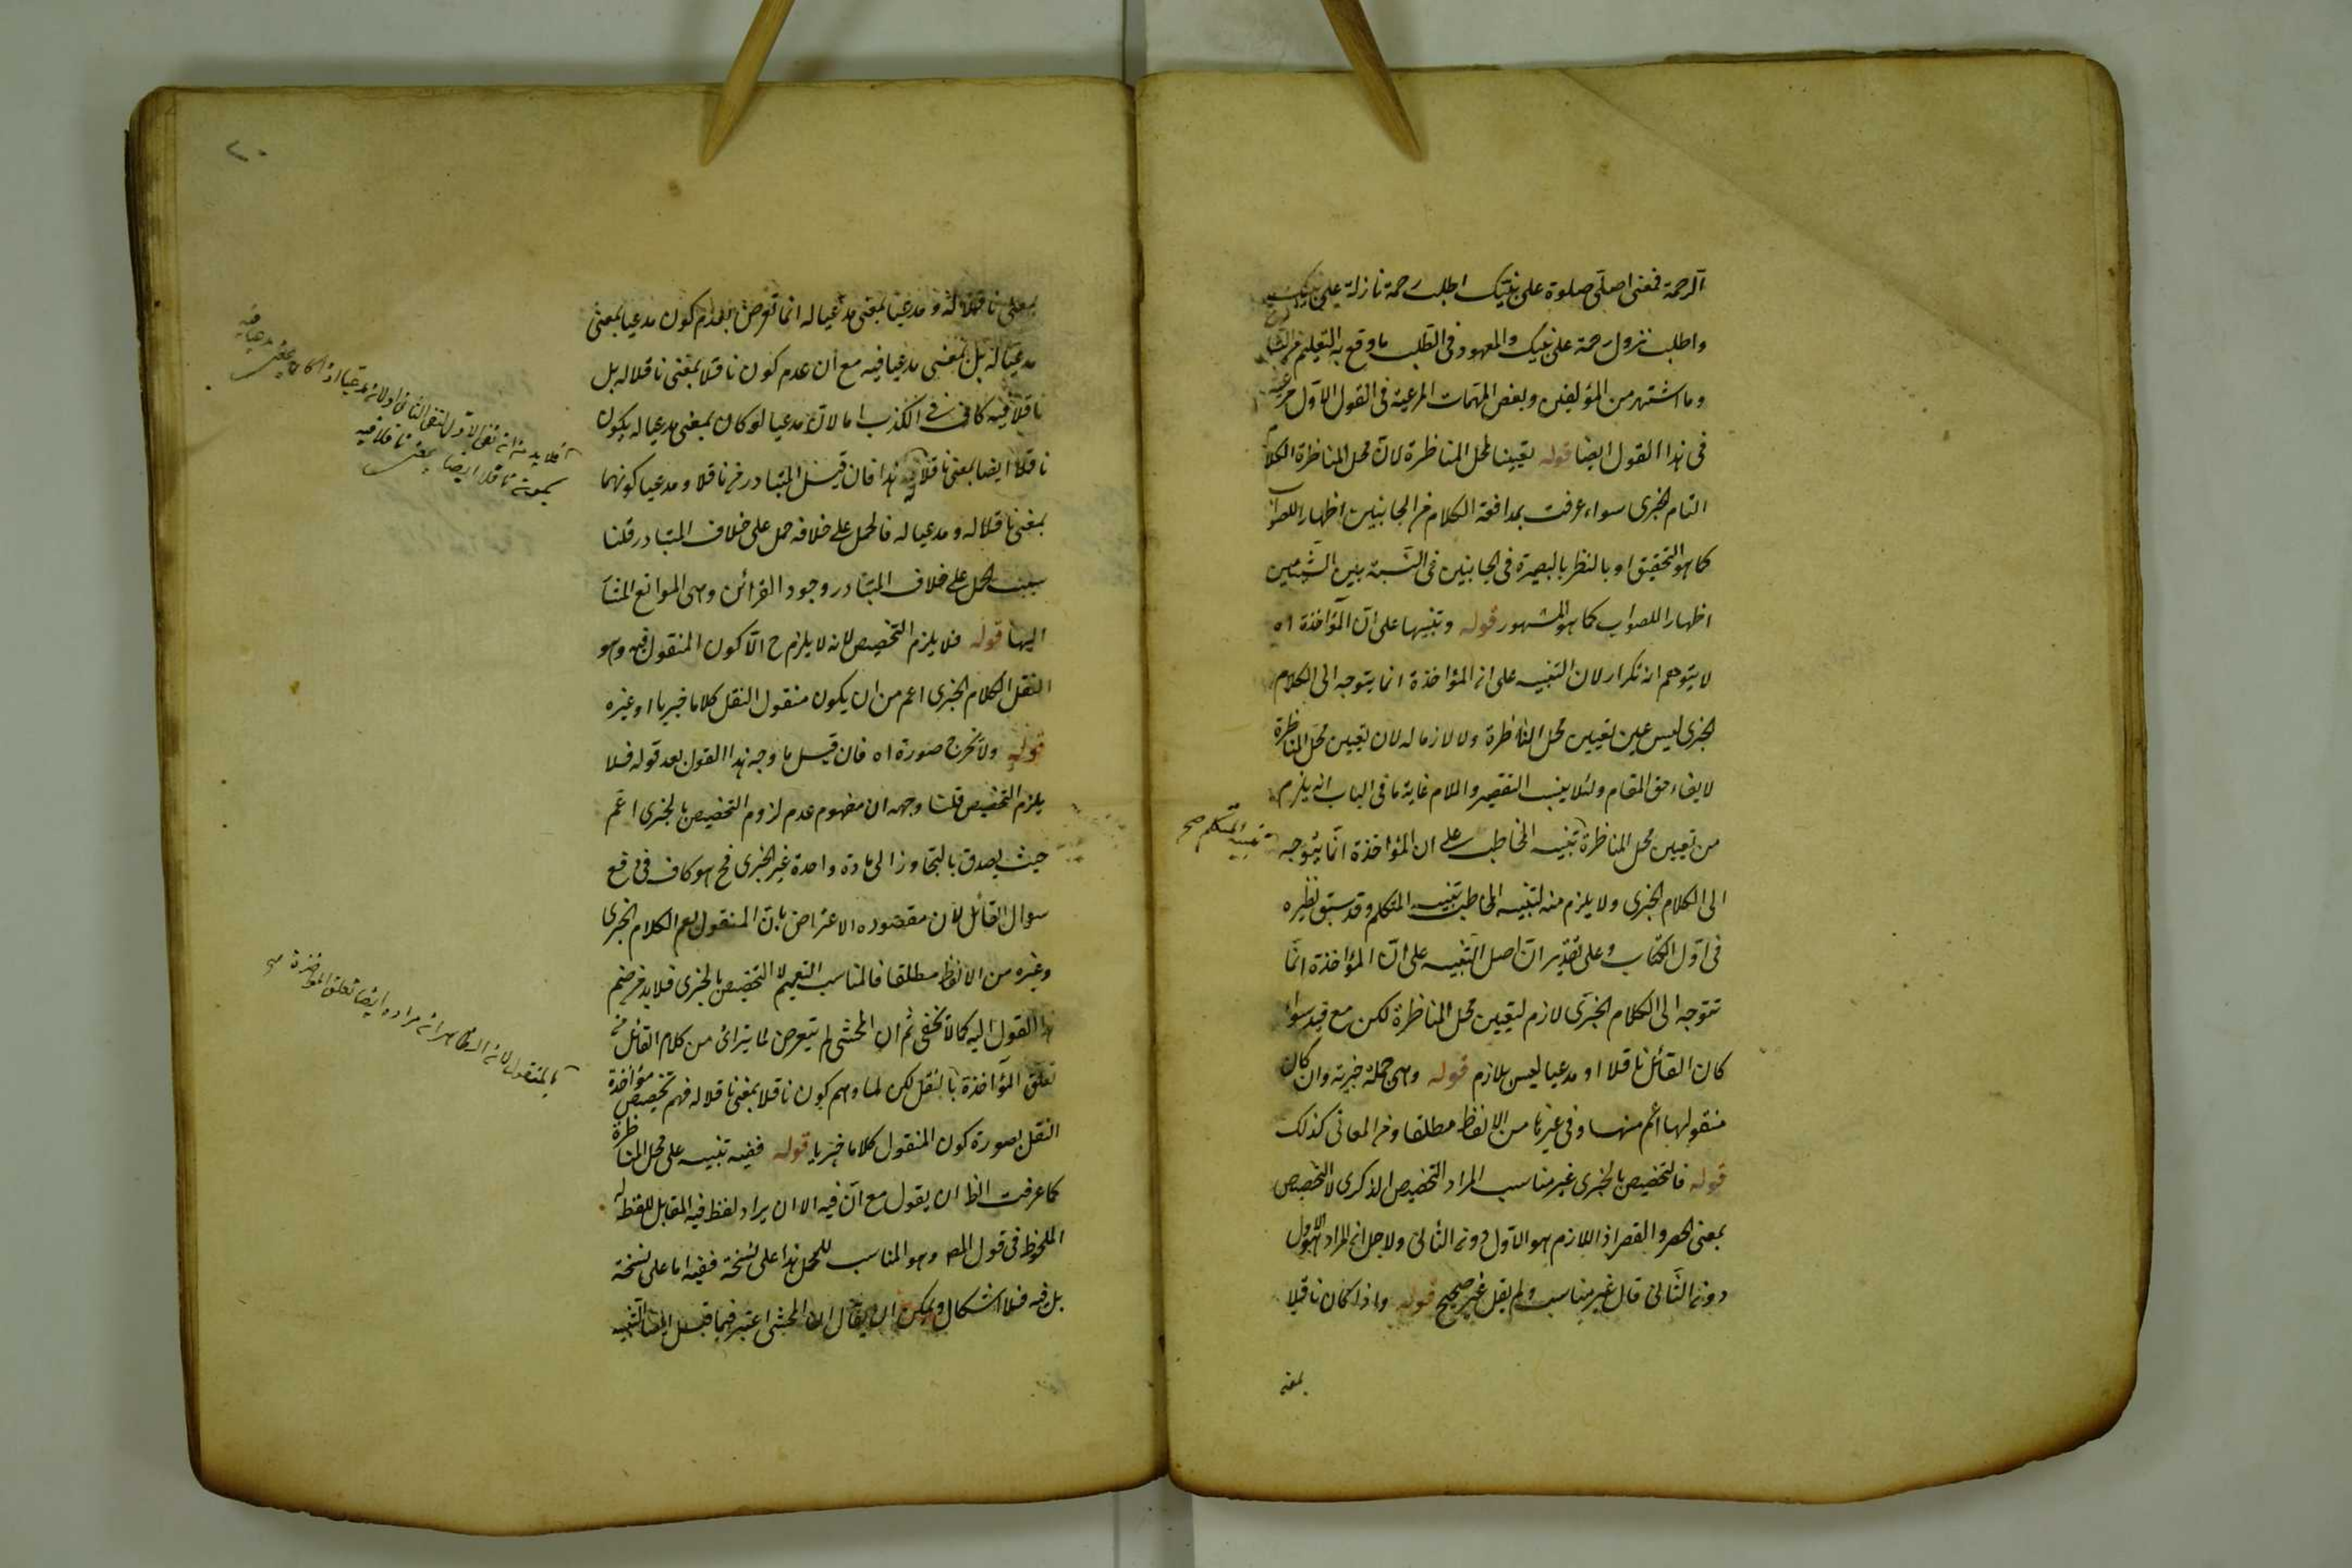 الرحمة فمعنى اصلى صلوة على نبيك اطلب رحمة نازلة على نبيك
واطلب نزول رحمة على نبيك والمعهود فى الطلب ما وقع به التعليم من
وما اشتهر من المؤلفين وبعض المهمات المرعية فى القول الاول مرعية
فى هذا القول ايضا قوله تعيينا لمحل المناظرة لان محل المناظرة الكلام
التام الخبرى سواء عرفت بمدافعة الكلام من الجانبين اظهارا للصواب
كما هو التحقيق او بالنظر بالبصيرة فى الجانبين فى النسبة بين الشيئين
اظهارا للصواب كما هو المشهور قوله وتنبيها على ان المؤاخذة اه
لا يتوهم انه تكرار لان التنبيه على ان المؤاخذة انما يتوجه الى الكلام
الخبرى ليس عين تعيين محل المناظرة ولا لازما له لان تعيين محل المناظرة
لايفاء حق المقام ولئلا ينسب التقصير والملام غاية ما فى الباب انه يلزم
من تعيين محل المناظرة تنبيه المخاطب على ان المؤاخذة انما يتوجه
الى الكلام الخبرى ولا يلزم منه لتنبيه المخاطب تنبيه المتكلم وقد سبق نظيره
فى اول الكتاب وعلى تقدير ان اصل التنبيه على ان المؤاخذة انما
تتوجه الى الكلام الخبرى لازم لتعيين محل المناظرة لكن مع قيد سواء
كان القائل ناقلا او مدعيا ليس بلازم قوله وهى جملة خبرية وان كان
منقولها اعم منها وفى غيرها من الالفاظ مطلقا ومن المعانى كذلك
قوله فالتخصيص بالخبرى غير مناسب المراد التخصيص الذكرى لا التخصيص
بمعنى الحصر والقصر اذ اللازم هو الاول دون الثانى ولاجل ان المراد هو الاول
دون الثانى قال غير مناسب ولم يقل غير صحيح قوله واذا كان ناقلا
بمعنى
تنبيه المتكلم صح
٢٠
بمعنى ناقلا له و مدعيا بمعنى مدعيا له انما تعرض بعدم كون مدعيا بمعنى
مدعيا له بل بمعنى مدعيا فيه مع ان عدم كون ناقلا بمعنى ناقلا له بل
ناقلا فيه كاف فى الكذب اما لان مدعيا لو كان بمعنى مدعيا له يكون
ناقلا ايضا بمعنى ناقلا له هذا فان قيل المتبادر من ناقلا و مدعيا كونهما
بمعنى ناقلا له و مدعيا له فالحمل على خلافه حمل على خلاف المتبادر قلنا
سبب الحمل على خلاف المتبادر وجود القرائن وهى الموانع المشار
اليها قوله فلا يلزم التخصيص لانه لا يلزم ح الا كون المنقول فيه وهو
النقل الكلام الخبرى اعم من ان يكون منقول النقل كلاما خبريا او غيره
قوله ولا تخرج صورة اه فان قيل ما وجه هذا القول بعد قوله فلا
يلزم التخصيص قلنا وجهه ان مفهوم عدم لزوم التخصيص بالخبرى اعم
حيث يصدق بالتجاوز الى مادة واحدة غير الخبرى فح هو كاف فى دفع
سوال القائل لان مقصوده الاعتراض بان المنقول يعم الكلام الخبرى
وغيره من الالفاظ مطلقا فالمناسب التعميم لا التخصيص بالخبرى فلا بد من ضم
هذا القول اليه كما لا يخفى ثم ان المحشى لم يتعرض لما يتراى من كلام القائل من
تعلق المؤاخذة بالنقل لكن لما وهم كون ناقلا بمعنى ناقلا له فهم تخصيص مؤاخذة
النقل بصورة كون المنقول كلاما خبريا قوله ففيه تنبيه على محل المناظرة
كما عرفت الظ ان يقول مع ان فيه الا ان يراد لفظ فيه المقابل للفظ له
الملحوظ فى قول المص وهو المناسب للمحل هذا على نسخة ففيه اما على نسخة
بل فيه فلا اشكال ويمكن ان يقال ان المحشى اعتبر فيما قبل ايضا التنبيه